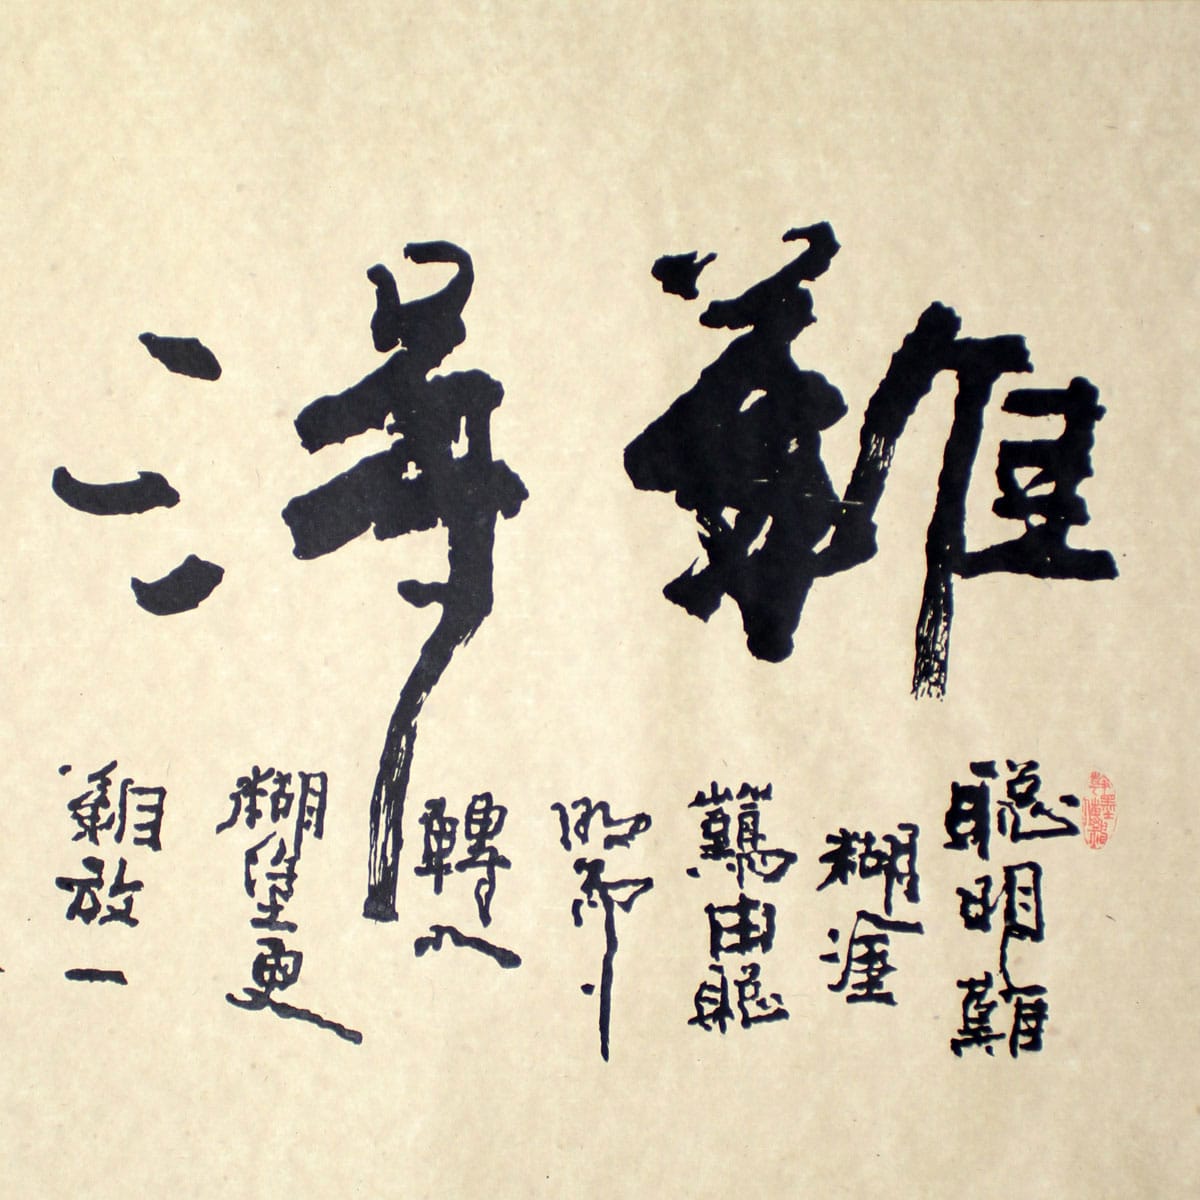 難得
聰明難
糊塗
難由聰
明而
轉入
糊塗更
難放一